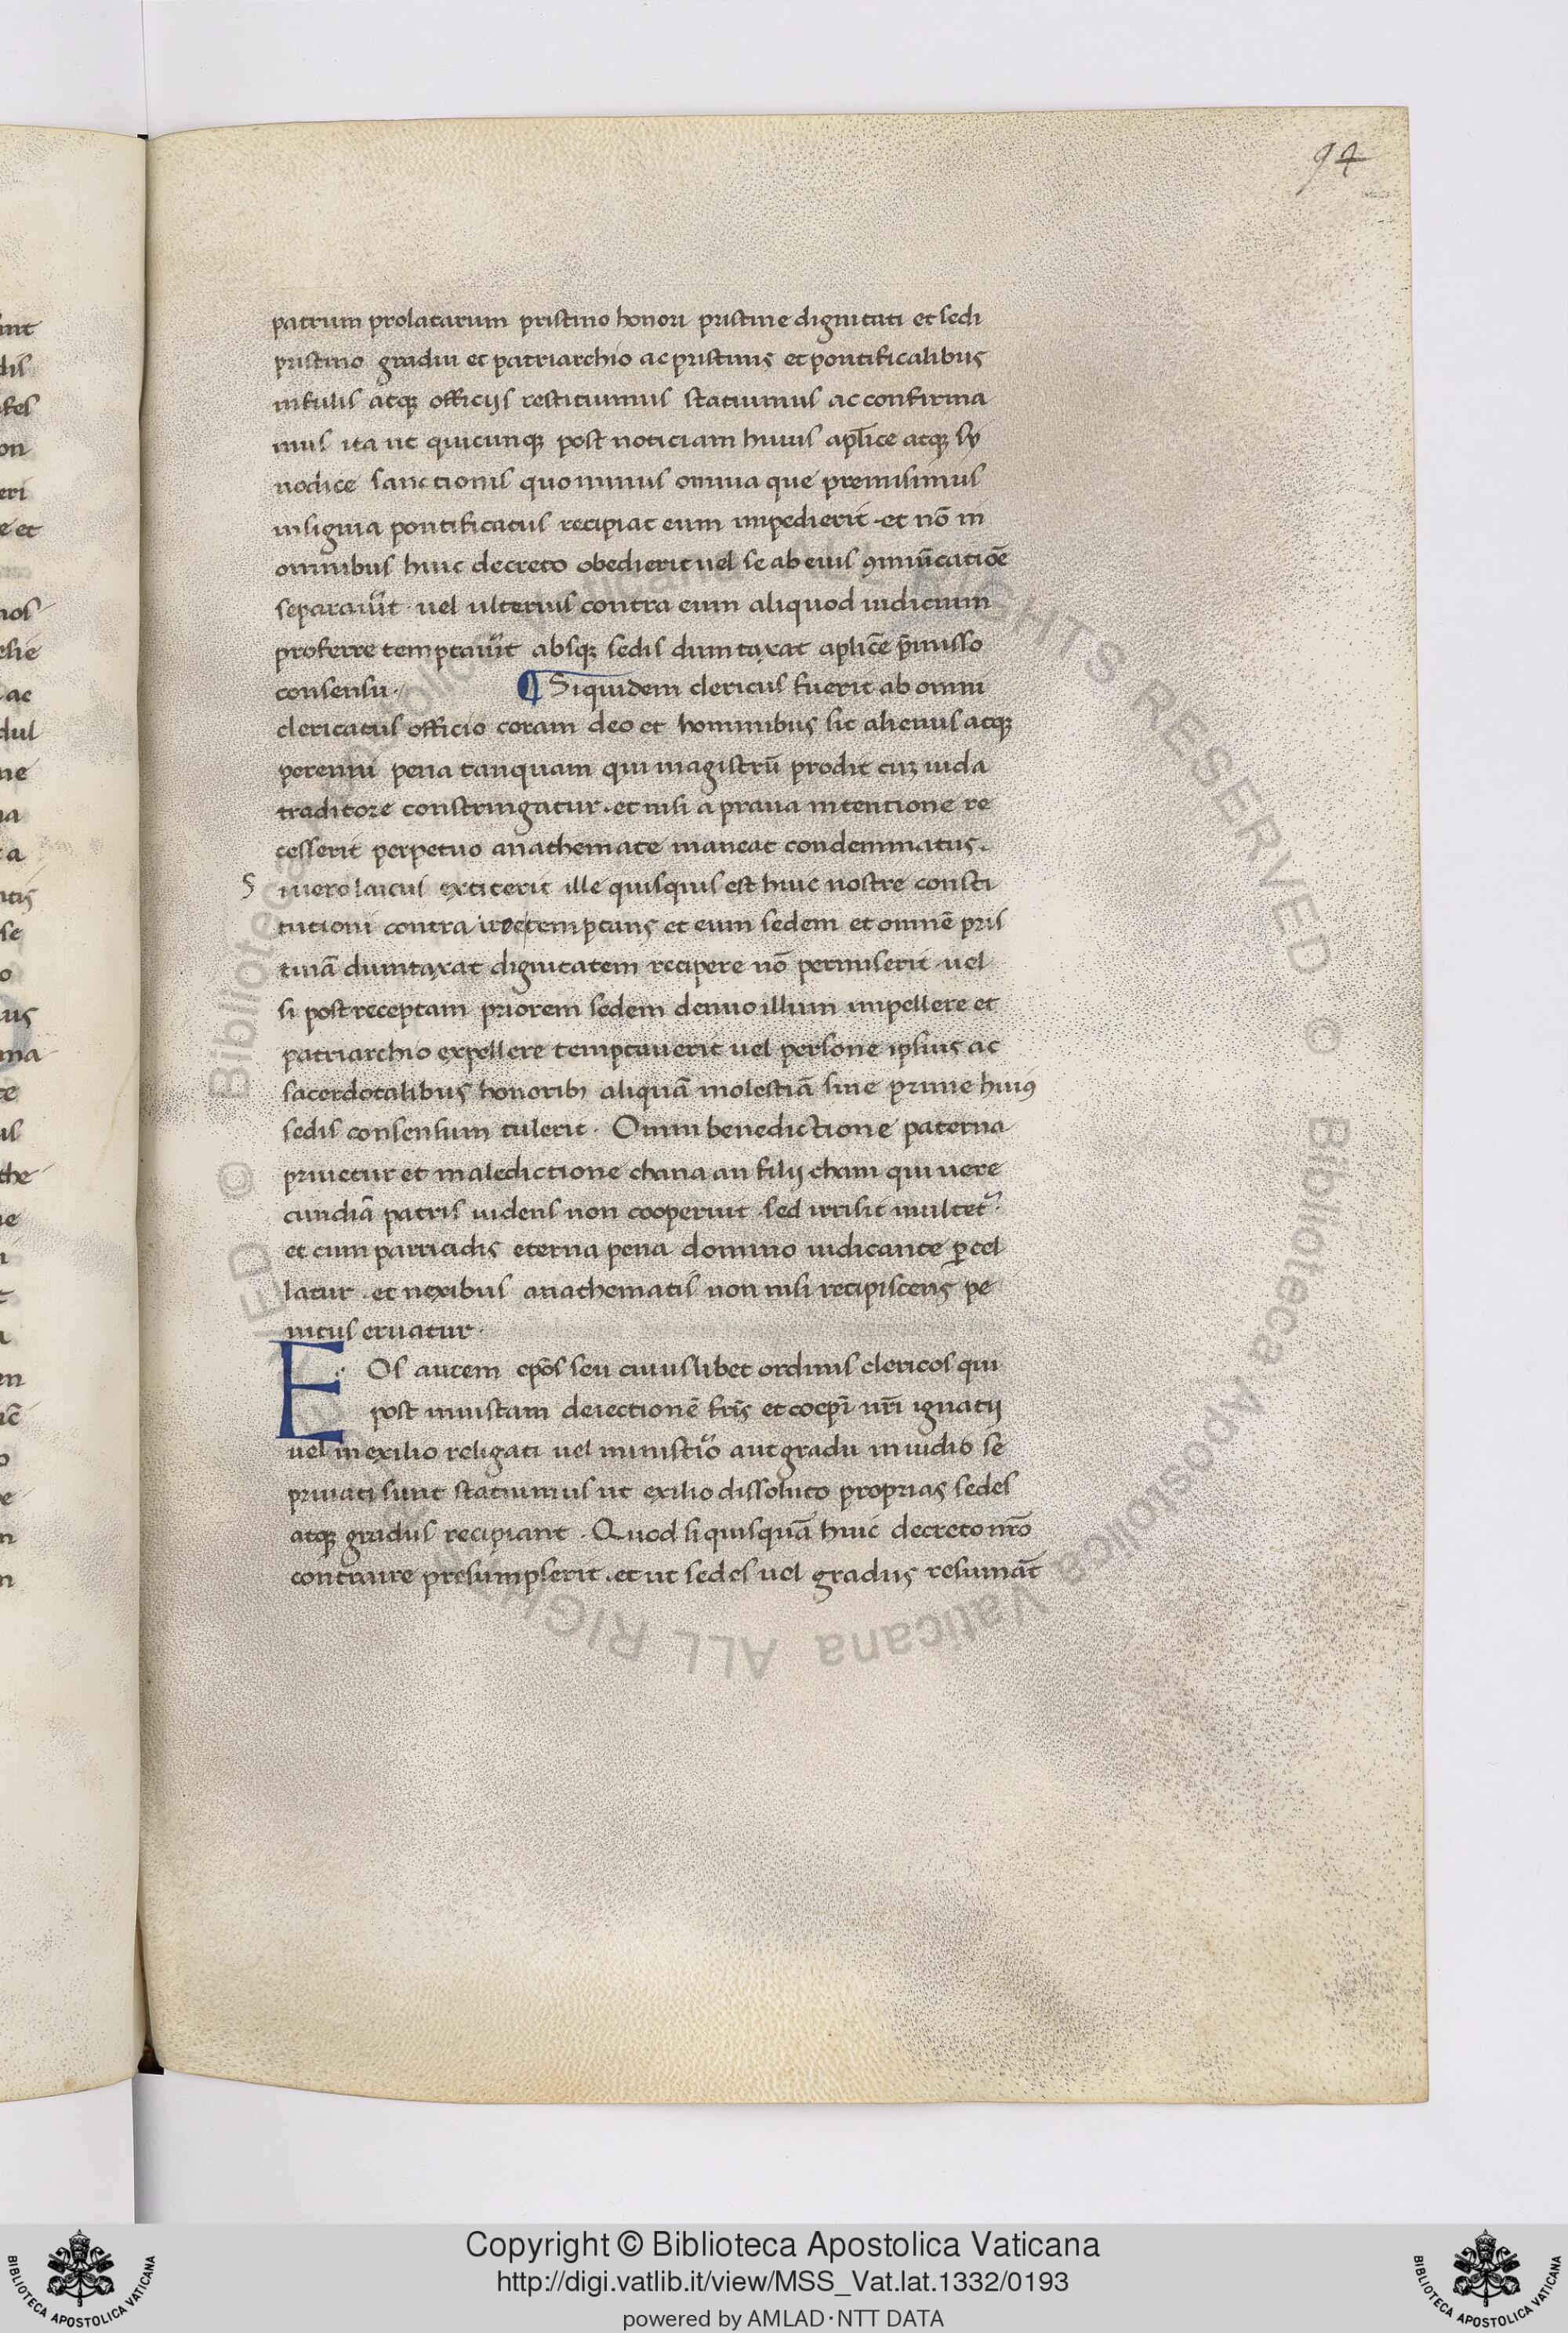 94
patrum prolatarum pristino honori pristine dignitati et sedi
pristino gradui et patriarchio ac pristinis et pontificalibus
infulis atqꝫ officijs restituimus statuimus ac confirma
mus ita ut quicunqꝫ post noticiam huius aplice atqꝫ sy
nodice sanctionis quominus omnia que premisimus
insignia pontificatus recipiat eum impedierit · et nō in
omnibus huic decreto obedierit uel se ab eius ꝯmūicatiōe
separauit · uel ulterius contra eum aliquod iudicium
proferre temptauit absqꝫ sedis dumtaxat aplice p̄misso
consensu · ¶ Siquidem clericus fuerit ab omni
clericatus officio coram deo et hominibus sit alienus atqꝫ
perenni pena tanquam qui magistrū prodit cuꝫ iuda
traditore constringatur · et nisi a praua intentione re
cesserit perpetuo anathemate maneat condemnatus ·
S iuero laicus extiterit ille quisquis est huic nostre consti
tutioni contra ire temptans et eum sedem et omnē pris
tinā dumtaxat dignitatem recipere nō permiserit · uel
si post receptam priorem sedem denuo illum impellere et
patriarchio expellere temptauerit uel persone ipsius ac
sacerdotalibus honoribꝫ aliquā molestiā sine prime huiꝰ
sedis consensum tulerit · Omni benedictione paterna
priuetur et maledictione chanaan filij cham qui uere
cundiā patris uidens non cooperuit · sed irrisit multet᷑ ·
et cum parricidis eterna pena domino iudicante ꝑcel
latur · et nexibus anathematis non nisi recipiscens pe
nitus eruatur ·
E Os autem epōs seu cuiuslibet ordinis clericos qui
post iniustam deiectionē fr̄is et coepī nr̄i ignatij
uel in exilio religati uel ministio aut gradu inuidio se
priuati sunt statuimus ut exilio dissoluto proprias sedes
atqꝫ gradus recipiant · Quod si quisquā huic decreto nr̄o
contraire presumpserit · et ut sedes uel gradus resumāt
Copyright © Biblioteca Apostolica Vaticana
http://digi.vatlib.it/view/MSS_Vat.lat.1332/0193
powered by AMLAD·NTT DATA